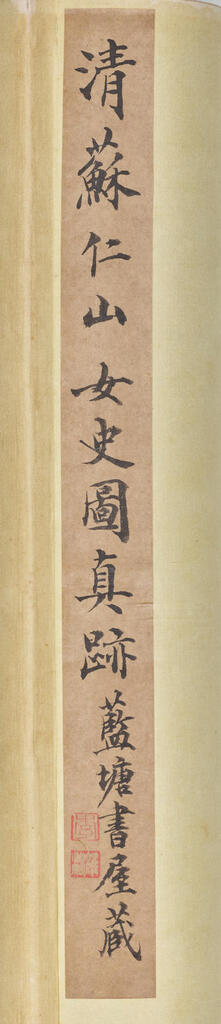 清蘇仁山女史圖真跡藍塘書屋藏